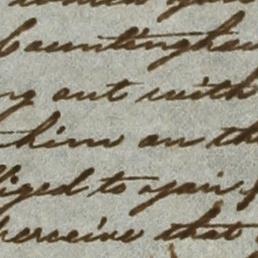 Countinghou
ng out with
him on th
liged to join
perceive that